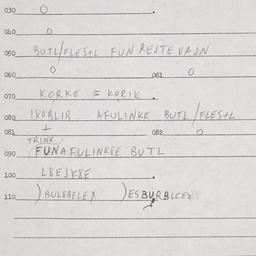 030 O
040 O
050 BUTL/FLESTL FUN REJTE VAJN
060 O 061 O
070 KORKE = KORIK
080 IXORLIB AFULINKE BUTL/FLESTL
081 + 082 O
TRINK
090 FUNAFULINK8E BUTL
100 L8EJK8E
110 ) BUL88ELEX ) ESBURBLCEX